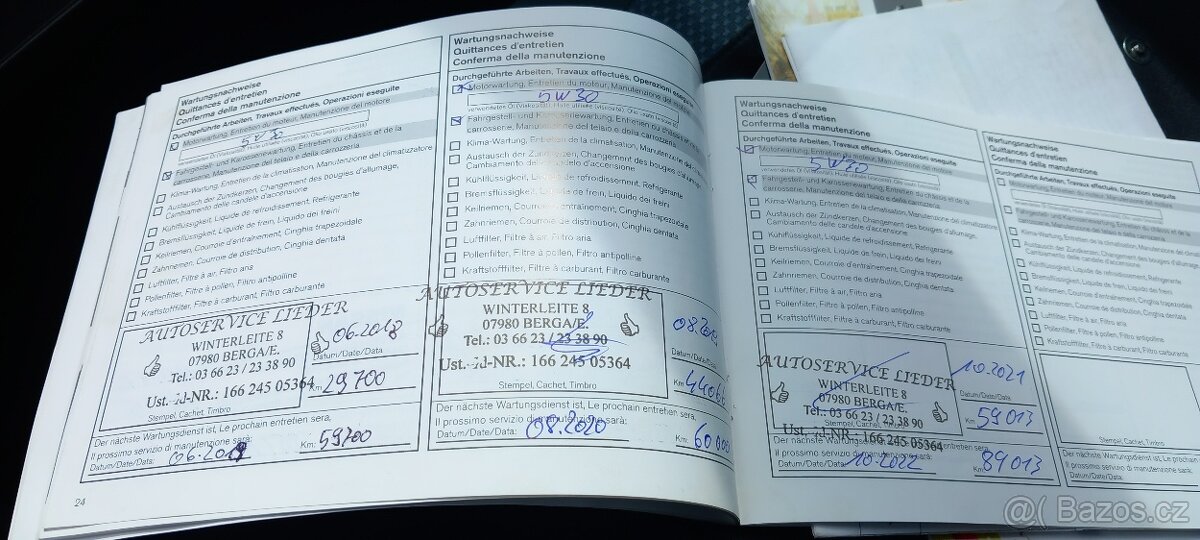 Wartungsnachweise
Quittances d'entretien
Conferma della manutenzione
Durchgeführte Arbeiten, Travaux effectués, Operazioni eseguite
Motorwartung, Entretien du moteur, Manutenzione del motore
5W30
Fahrgestell- und Karosseriewartung, Entretien du châssis et de la
carrosserie, Manutenzione del telaio e della carrozzeria
Klima-Wartung, Entretien de la climatisation, Manutenzione del climatizzatore
Austausch der Zündkerzen, Changement des bougies d'allumage,
Cambiamento delle candele d'accensione
Kühlflüssigkeit, Liquide de refroidissement, Refrigerante
Bremsflüssigkeit, Liquide de frein, Liquido dei freini
Keilriemen, Courroie d'entraînement, Cinghia trapezoidale
Zahnriemen, Courroie de distribution, Cinghia dentata
Luftfilter, Filtre à air, Filtro aria
Pollenfilter, Filtre à pollen, Filtro antipolline
Kraftstofffilter, Filtre à carburant, Filtro carburante
AUTOSERVICE LIEDER
WINTERLEITE 8
07980 BERGA/E.
Tel.: 03 66 23 / 23 38 90
Ust.-Id-NR.: 166 245 05364
06.2018
Datum/Date/Data
Km 29700
Stempel, Cachet, Timbro
Der nächste Wartungsdienst ist, Le prochain entretien sera,
Il prossimo servizio di manutenzione sarà:
Datum/Date/Data: 06.2019
Km: 59700
24
Wartungsnachweise
Quittances d'entretien
Conferma della manutenzione
Durchgeführte Arbeiten, Travaux effectués, Operazioni eseguite
Motorwartung, Entretien du moteur, Manutenzione del motore
5W30
verwendetes Öl (Viskosität), Huile utilisée (viscosité), Olio usato (viscosità)
Fahrgestell- und Karosseriewartung, Entretien du châssis et de la
carrosserie, Manutenzione del telaio e della carrozzeria
Klima-Wartung, Entretien de la climatisation, Manutenzione del
Austausch der Zündkerzen, Changement des bougies d'allumage,
Cambiamento delle candele d'accensione
Kühlflüssigkeit, Liquide de refroidissement, Refrigerante
Bremsflüssigkeit, Liquide de frein, Liquido dei freini
Keilriemen, Courroie d'entraînement, Cinghia trapezoidale
Zahnriemen, Courroie de distribution, Cinghia dentata
Luftfilter, Filtre à air, Filtro aria
Pollenfilter, Filtre à pollen, Filtro antipolline
Kraftstofffilter, Filtre à carburant, Filtro carburante
AUTOSERVICE LIEDER
WINTERLEITE 8
07980 BERGA/E.
Tel.: 03 66 23 / 23 38 90
Ust.-Id-NR.: 166 245 05364
08.2019
Datum/Date/Data
Km 44066
Stempel, Cachet, Timbro
Der nächste Wartungsdienst ist, Le prochain entretien sera,
Il prossimo servizio di manutenzione sarà:
Datum/Date/Data: 08.2020
Km: 60 000
Wartungsnachweise
Quittances d'entretien
Conferma della manutenzione
Durchgeführte Arbeiten, Travaux effectués, Operazioni eseguite
Motorwartung, Entretien du moteur, Manutenzione del motore
Fahrgestell- und Karosseriewartung, Entretien du châssis et de la
carrosserie, Manutenzione del telaio e della carrozzeria
Klima-Wartung, Entretien de la climatisation, Manutenzione del climatizzatore
Austausch der Zündkerzen, Changement des bougies d'allumage,
Cambiamento delle candele d'accensione
Kühlflüssigkeit, Liquide de refroidissement, Refrigerante
Bremsflüssigkeit, Liquide de frein, Liquido dei freini
Keilriemen, Courroie d'entraînement, Cinghia trapezoidale
Zahnriemen, Courroie de distribution, Cinghia dentata
Luftfilter, Filtre à air, Filtro aria
Pollenfilter, Filtre à pollen, Filtro antipolline
Kraftstofffilter, Filtre à carburant, Filtro carburante
AUTOSERVICE LIEDER
WINTERLEITE 8
07980 BERGA/E.
Tel.: 03 66 23 / 23 38 90
Ust.-Id-NR.: 166 245 05364
10.2021
Datum/Date/Data
Km 59013
Der nächste Wartungsdienst ist, Le prochain entretien sera,
Il prossimo servizio di manutenzione sarà:
Datum/Date/Data: 10.2022
Km 89013
Wartungsnachweise
Quittances d'entretien
Conferma della manutenzione
Durchgeführte Arbeiten, Travaux effectués, Operazioni eseguite
Klima-Wartung, Entretien de la climatisation, Manutenzione del
Austausch der Zündkerzen, Changement des bougies
Cambiamento delle candele d'accensione
Kühlflüssigkeit, Liquide de refroidissement, Refrigerante
Bremsflüssigkeit, Liquide de frein, Liquido dei freini
Keilriemen, Courroie d'entraînement, Cinghia trapezoidale
Zahnriemen, Courroie de distribution, Cinghia dentata
Luftfilter, Filtre à air, Filtro aria
Pollenfilter, Filtre à pollen, Filtro antipolline
Kraftstofffilter, Filtre à carburant, Filtro carburante
Stempel, Cachet, Timbro
Der nächste Wartungsdienst ist, Le prochain
Il prossimo servizio di manutenzione sarà:
Datum/Date/Data:
Bazos.cz